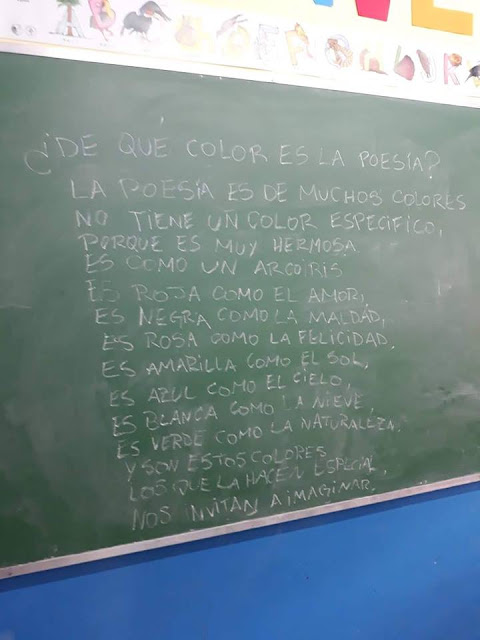 ¿DE QUÉ COLOR ES LA POESÍA?
LA POESÍA ES DE MUCHOS COLORES
NO TIENE UN COLOR ESPECÍFICO,
PORQUE ES MUY HERMOSA
ES COMO UN ARCOIRIS
ES ROJA COMO EL AMOR,
ES NEGRA COMO LA MALDAD,
ES ROSA COMO LA FELICIDAD,
ES AMARILLA COMO EL SOL,
ES AZUL COMO EL CIELO,
ES BLANCA COMO LA NIEVE,
ES VERDE COMO LA NATURALEZA.
Y SON ESTOS COLORES
LOS QUE LA HACEN ESPECIAL,
NOS INVITAN A IMAGINAR.